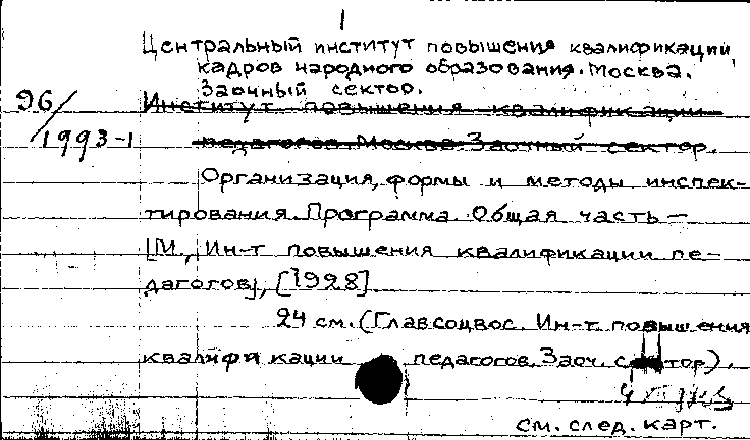 1
Центральный институт повышения квалификации
кадров народного образования. Москва.
Заочный сектор.
96/
1993-1
Институт повышения квалификации
педагогов. Москва. Заочный сектор.
Организация, формы и методы инспек-
тирования. Программа. Общая часть —
[М., Ин-т повышения квалификации пе-
дагогов], [1928]
24 см. (Главсоцвос. Ин-т повышения
квалификации педагогов. Заоч. сектор).
см. след. карт.